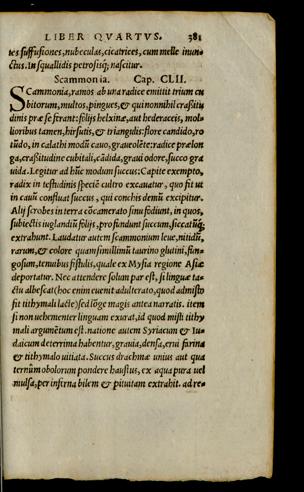 LIBER QVARTVS. 381
tes suffusiones, nubeculas, cicatrices, cum melle inun-
ctus. In squallidis petrosisq; nascitur.
Scammonia. Cap. CLII.
SCammonia, ramos ab una radice emittit trium cu
bitorum, multos, pingues, & qui nonnihil craßitu
dinis præ se ferant: folijs helxinæ, aut hederaceis, mol-
lioribus tamen, hirsutis, & triangulis: flore candido, ro
tūdo, in calathi modū cauo, graueolēte: radice prælon
ga, craßitudine cubitali, cādida, graui odore, succo gra
uida. Legitur ad hūc modum succus: Capite exempto,
radix in testudinis speciē cultro excauatur, quo fit ut
in cauū confluat succus, qui conchis demū excipitur.
Alij scrobes in terra cōcamerato sinu fodiunt, in quos,
subiectis iuglandiū folijs, profundunt succum, siccatūq;
extrahunt. Laudatur autem scammonium leue, nitidū,
rarum, & colore quam simillimū taurino glutini, fun-
gosum, tenuibus fistulis, quale ex Mysia regione Asiæ
deportatur. Nec attendere solum par est, si linguæ ta-
ctu albescat (hoc enim euenit adulterato, quod admisto
fit tithymali lacte) sed lōge magis antea narratis. item
si non uehementer linguam exurat, id quod misti tithy
mali argumētum est. natione autem Syriacum & Iu-
daicum deterrima habentur, grauia, densa, erui farina
& tithymalo uitiata. Succus drachmæ unius aut qua
ternûm obolorum pondere haustus, ex aqua pura uel
mulsa, per inferna bilem & pituitam extrahit. ad re-